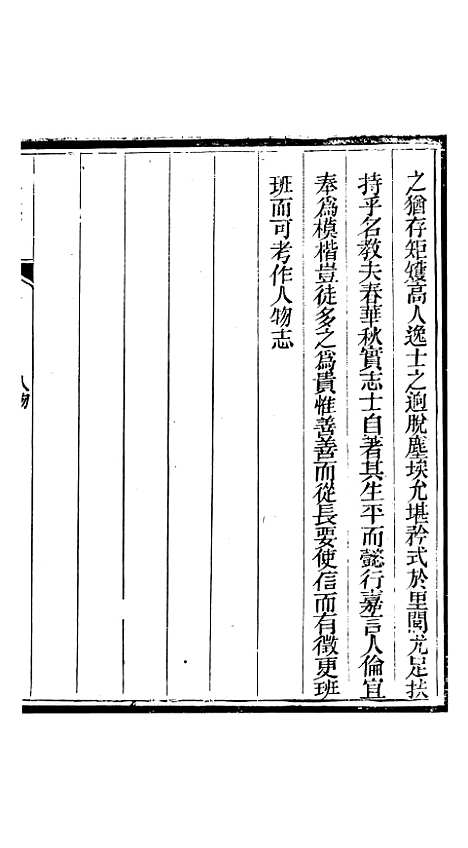 之猶存矩矱高人逸士之逈脫塵埃允堪矜式於里閭尤足扶
持乎名教夫春華秋實志士自著其生平而懿行嘉言人倫宜
奉為模楷豈徒多之為貴惟善善而從長要使信而有徵更班
班而可考作人物志
人物